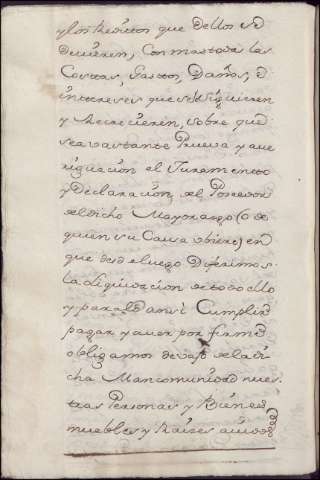 y los Reditos que dellos se
devieren, Con mas todas las
Costas, Gastos, Daños, è
intereses que se siguieren
y Acrecieren, sobre que
sea vastante Prueva y ave
riguacion el Juramento
y Declaracion del Poseedor
del dicho Mayorazgo (ò de
quien su Causa obiere) en
que desde luego Diferimos
la Liquidacion de todo ello
y para lo Dar assi Cumplir
pagar y aver por firme
obligamos devajo de la di
cha Mancomunidad nues
tras Personas y Bienes
muebles y Raizes avidos